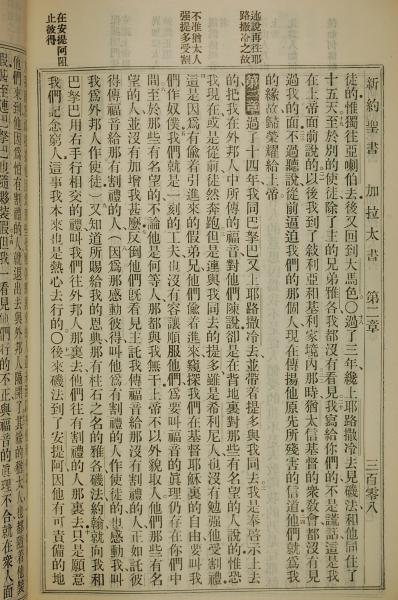 新約聖書 加拉太書 第二章 三百零八
述說再往耶
路撒冷之故
不准猶太人
強提多受割
在安提阿阻
止彼得
徒的惟獨往亞喇伯去後又回到大馬色〇過了三年纔上耶路撒冷去見磯法和他同住了
十五天至於別的使徒除了主的兄弟雅各我都沒有看見我寫給你們的不是謊話這是我
在上帝面前說的以後我到了敘利亞和基利家境內那時猶太信基督的衆教會都沒有見
過我的面不過聽說從前逼迫我們的那個人現在傳揚他原先所殘害的信道他們就爲我
的緣故歸榮耀給上帝
第二章過了十四年我同巴拏巴又上耶路撒冷去並帶著提多與我同去我是奉啓示上去
的把我在外邦人中所傳的福音對他們陳說卻是在背地裏對那些有名望的人說的惟恐
我現在或是從前徒然奔跑但是連與我同去的提多雖是希利尼人也沒有勉強他受割禮
這是因爲有偷著引進來的假弟兄他們偷著進來窺探我們在基督耶穌裏的自由要叫我
們作奴僕我們就是一刻的工夫也沒有容讓順服他們爲要叫福音的眞理仍存在你們中
間至於那些有名望的不論他是何等人那都與我無干上帝不以外貌取人他們那些有名
望的人並沒有加增我甚麼反倒他們旣看見主託我傳福音給那沒有割禮的人正如託彼
得傳福音給那有割禮的人（因爲那感動彼得叫他爲有割禮的人作使徒的也感動我叫
我爲外邦人作使徒）又知道所賜給我的恩典那有柱石之名的雅各磯法約翰就向我和
巴拏巴用右手行相交的禮叫我們往外邦人那裏去他們往有割禮的人那裏去只是願意
我們記念窮人這事我本來也是熱心去行的〇後來磯法到了安提阿因他有可責備的地